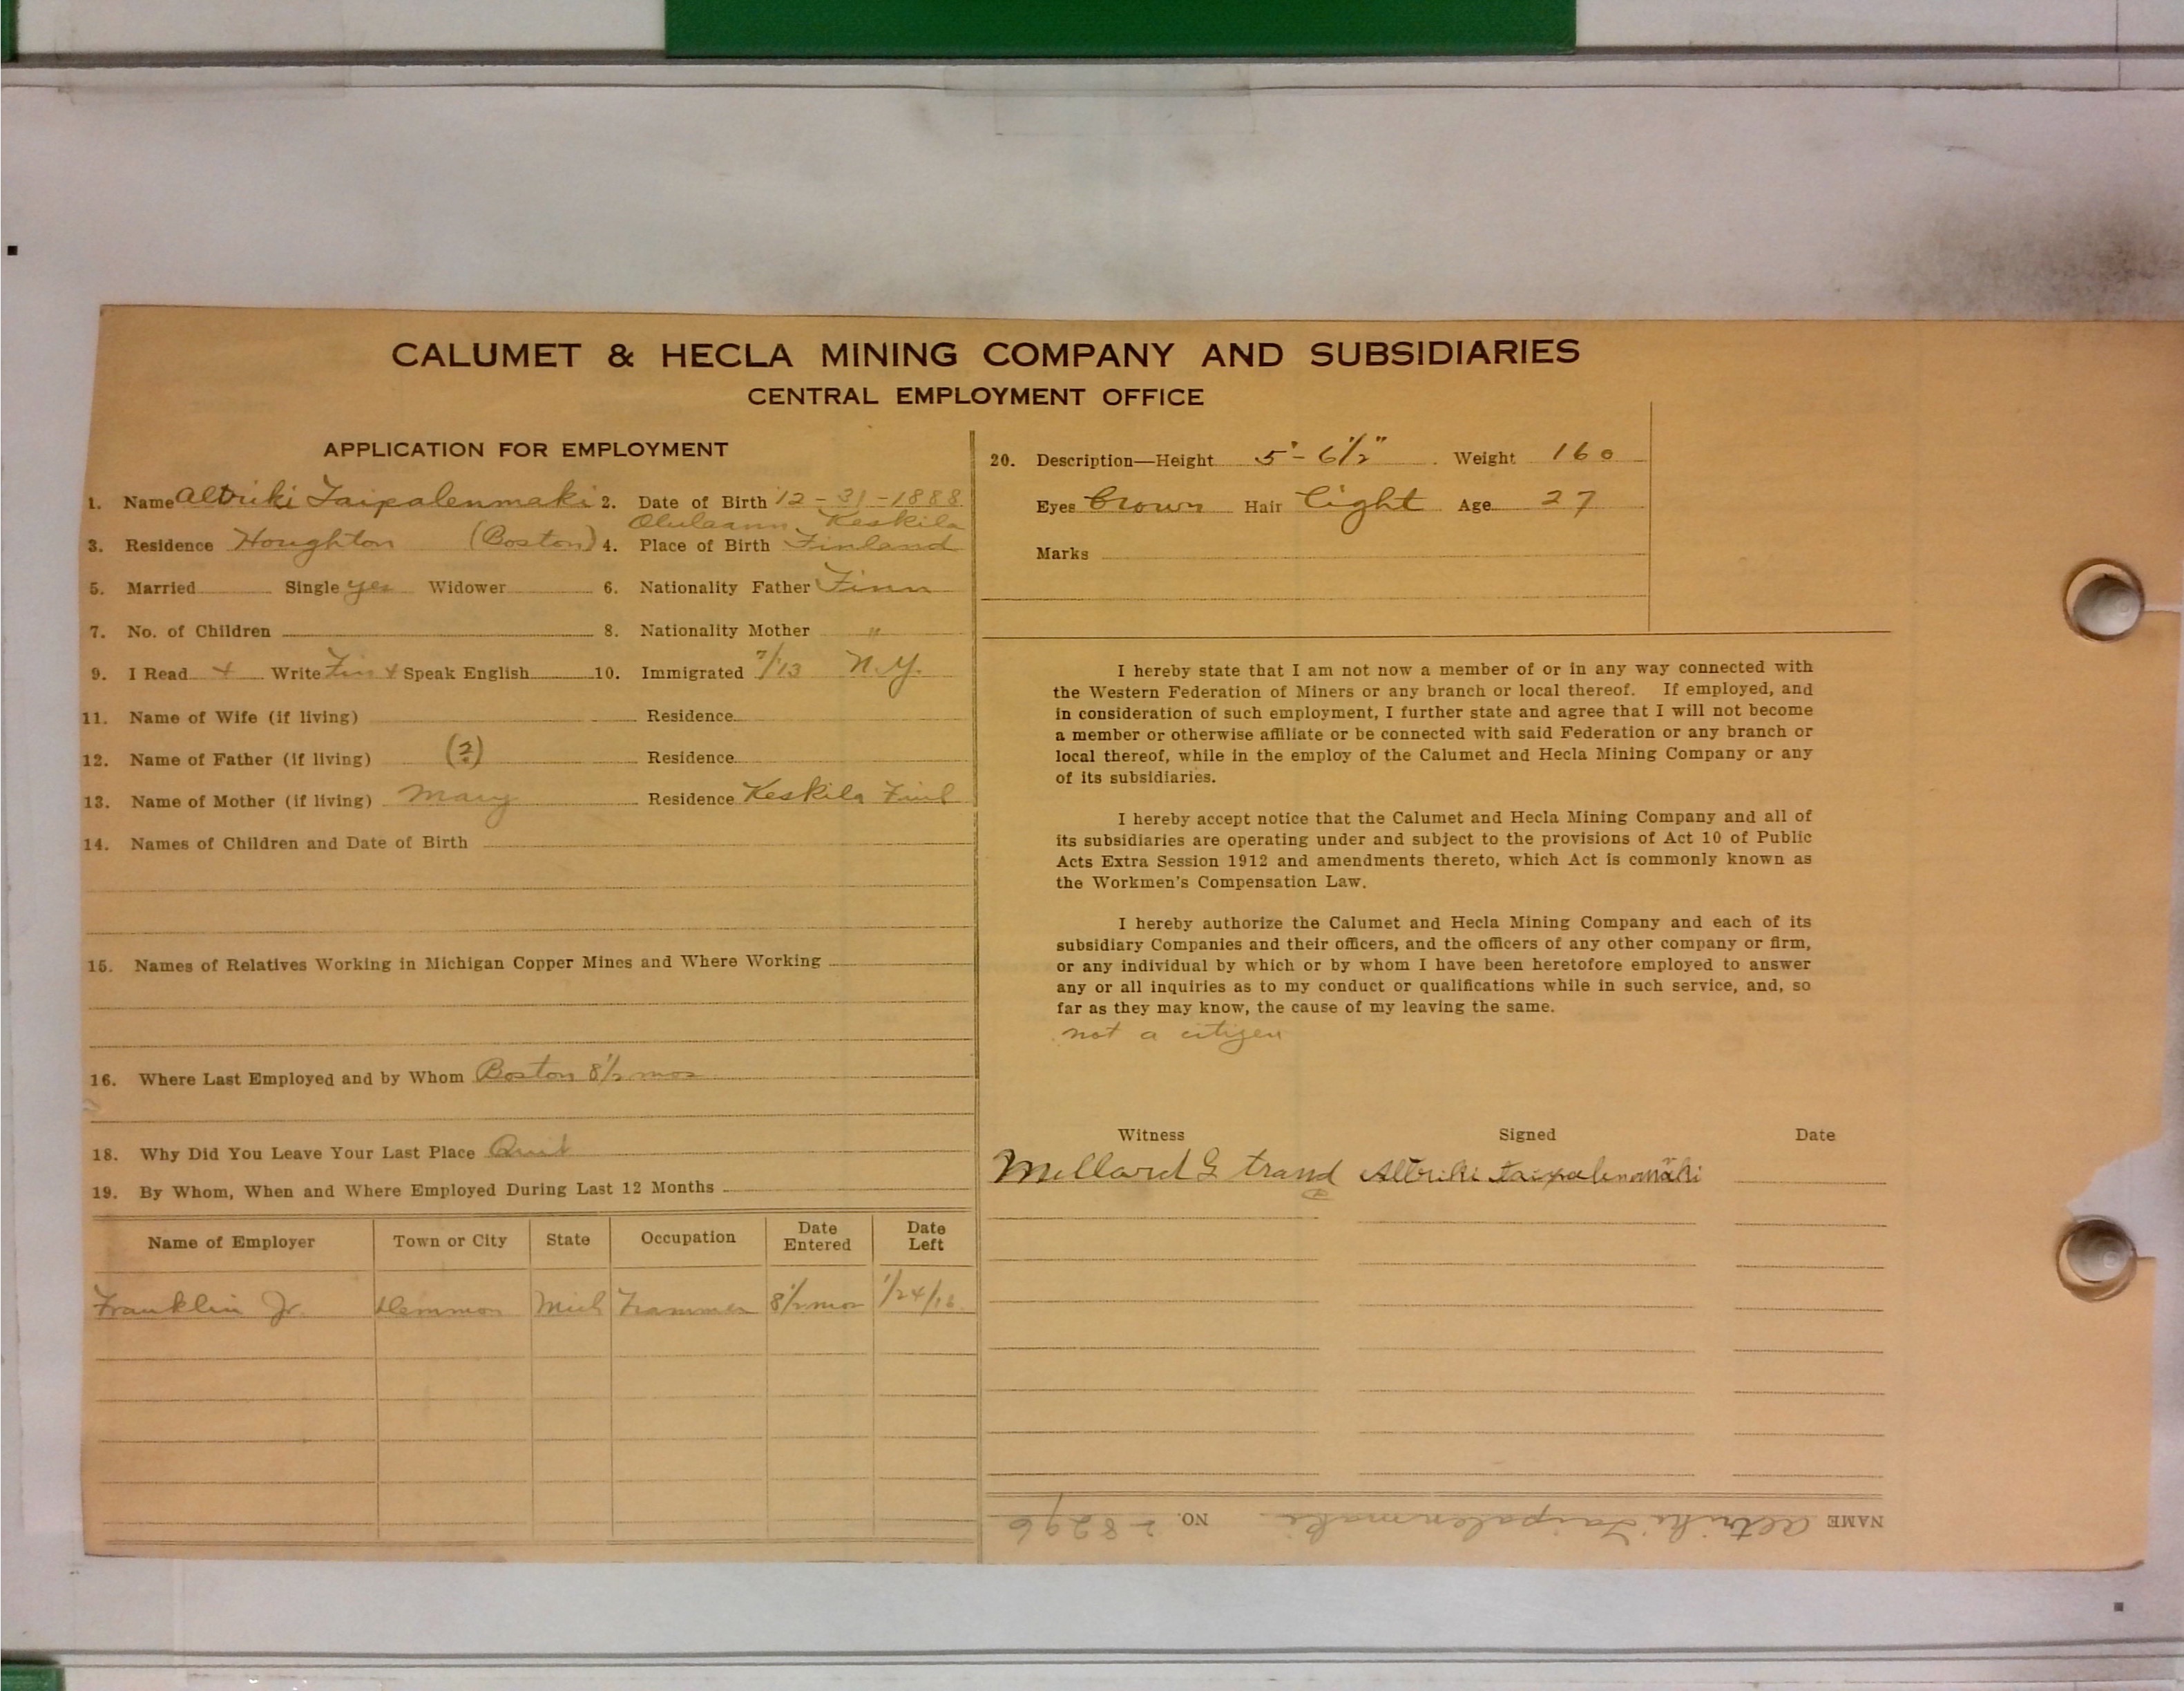 CALUMET & HECLA MINING COMPANY AND SUBSIDIARIES
CENTRAL EMPLOYMENT OFFICE
APPLICATION FOR EMPLOYMENT
1. Name Altriki Taipalenmaki 2. Date of Birth 12-31-1888
Keskila
3. Residence Houghton (Boston) 4. Place of Birth Finland
5. Married Single yes Widower 6. Nationality Father Finn
7. No. of Children 8. Nationality Mother "
9. I Read + Write Fin + Speak English 10. Immigrated 7/13 N.Y.
11. Name of Wife (if living) Residence
12. Name of Father (if living) (?) Residence
13. Name of Mother (if living) Mary Residence Keskila Finl
14. Names of Children and Date of Birth
15. Names of Relatives Working in Michigan Copper Mines and Where Working
16. Where Last Employed and by Whom Boston 8½ mos
18. Why Did You Leave Your Last Place Quit
19. By Whom, When and Where Employed During Last 12 Months
Name of Employer Town or City State Occupation Date Entered Date Left
Franklin Jr. Demmon Mich Trammer 8½ mos 1/24/16
20. Description—Height 5'-6½" Weight 160
Eyes brown Hair light Age 27
Marks
I hereby state that I am not now a member of or in any way connected with
the Western Federation of Miners or any branch or local thereof. If employed, and
in consideration of such employment, I further state and agree that I will not become
a member or otherwise affiliate or be connected with said Federation or any branch or
local thereof, while in the employ of the Calumet and Hecla Mining Company or any
of its subsidiaries.
I hereby accept notice that the Calumet and Hecla Mining Company and all of
its subsidiaries are operating under and subject to the provisions of Act 10 of Public
Acts Extra Session 1912 and amendments thereto, which Act is commonly known as
the Workmen's Compensation Law.
I hereby authorize the Calumet and Hecla Mining Company and each of its
subsidiary Companies and their officers, and the officers of any other company or firm,
or any individual by which or by whom I have been heretofore employed to answer
any or all inquiries as to my conduct or qualifications while in such service, and, so
far as they may know, the cause of my leaving the same.
not a citizen
Witness Signed Date
Millard G Trand Altriki Taipalenmäki
NAME Altriki Taipalenmaki NO. 28296